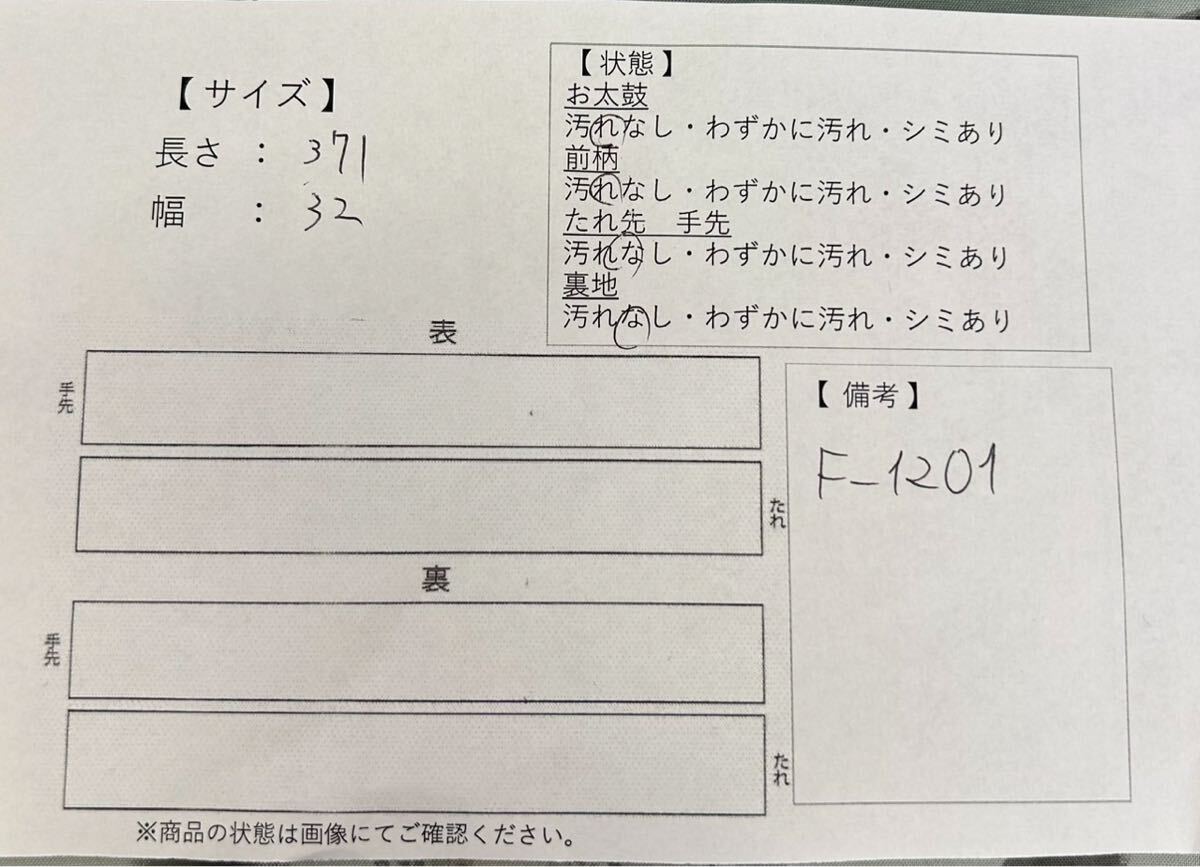 【 サイズ 】
長さ : 371
幅 : 32
【 状態 】
お太鼓
汚れなし・わずかに汚れ・シミあり
前柄
汚れなし・わずかに汚れ・シミあり
たれ先 手先
汚れなし・わずかに汚れ・シミあり
裏地
汚れなし・わずかに汚れ・シミあり
表
手先
たれ
裏
手先
たれ
【 備考 】
F-1201
※商品の状態は画像にてご確認ください。